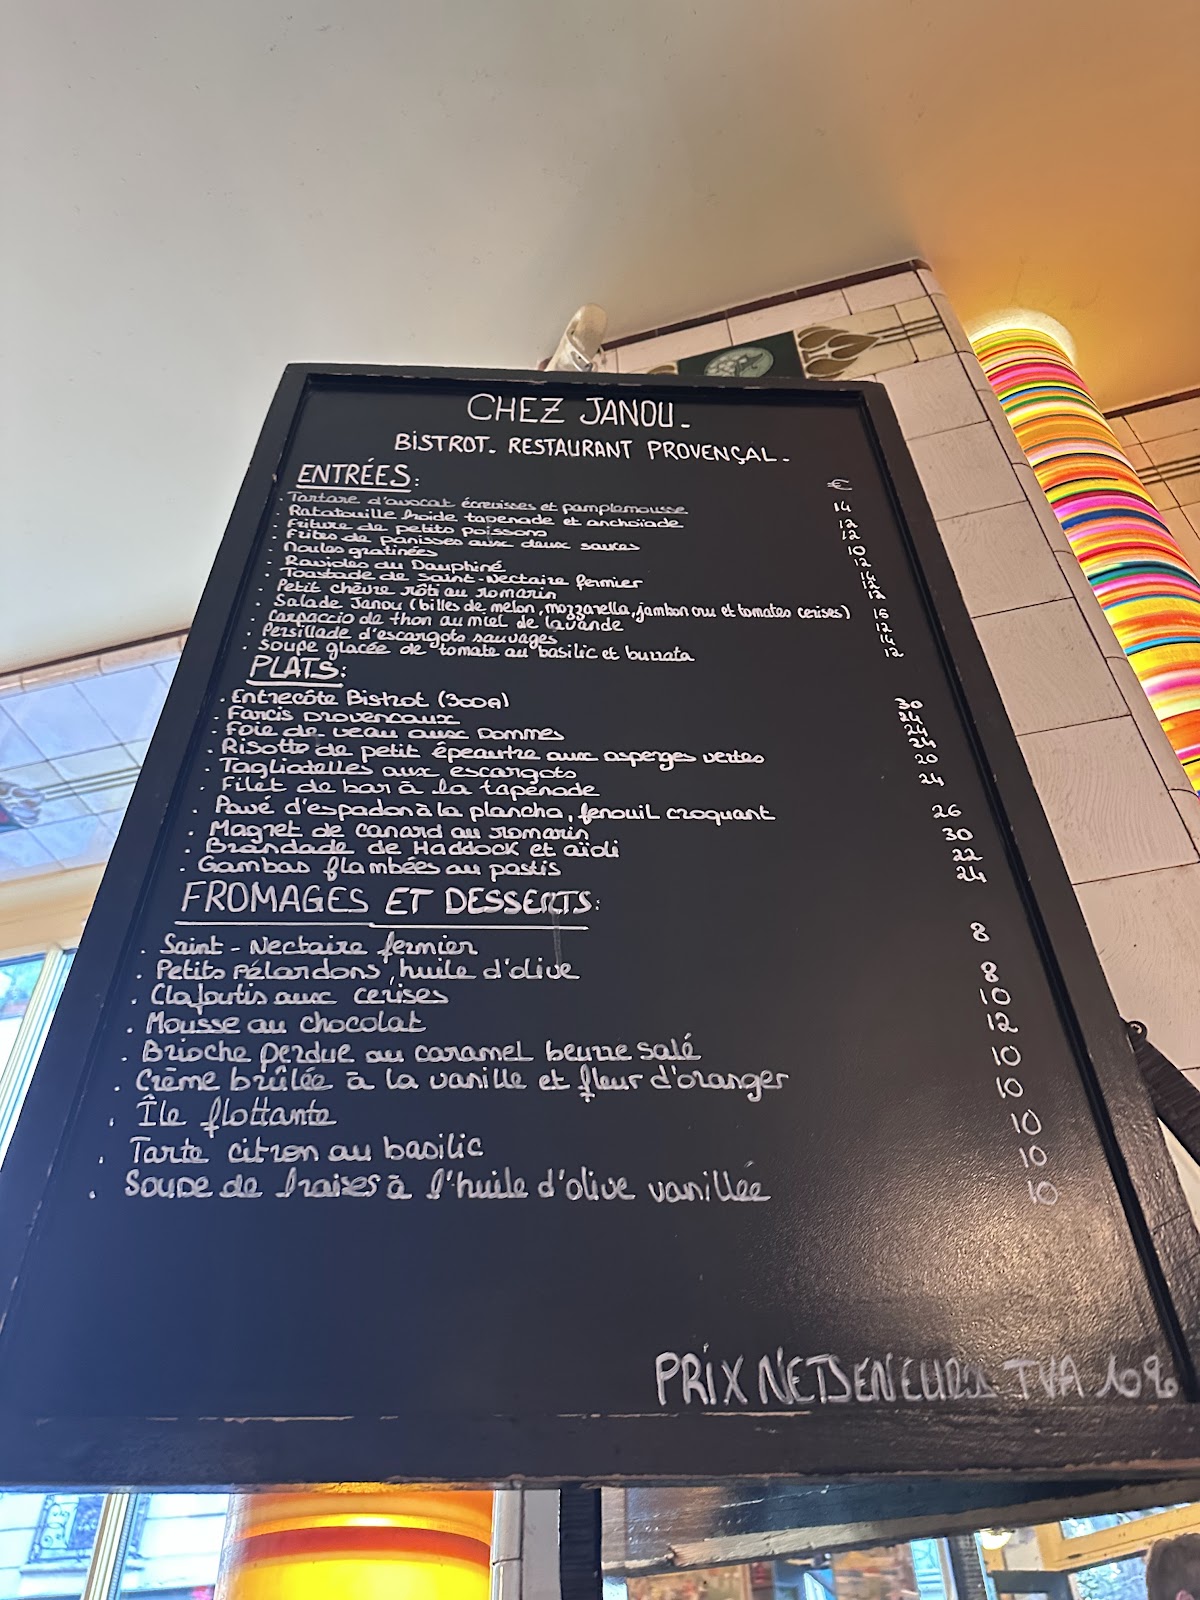 CHEZ JANOU.
BISTROT. RESTAURANT PROVENÇAL.
ENTRÉES: €
. Tartare d'avocat écrevisses et pamplemousse 14
. Ratatouille froide tapenade et anchoïade 12
. Friture de petits poissons 12
. Frites de panisses aux deux sauces 10
. Moules gratinées 12
. Ravioles du Dauphiné 14
. Toastade de Saint-Nectaire fermier 12
. Petit chèvre rôti au romarin 12
. Salade Janou (billes de melon, mozzarella, jambon cru et tomates cerises) 15
. Carpaccio de thon au miel de lavande 12
. Persillade d'escargots sauvages 14
. Soupe glacée de tomate au basilic et burrata 12
PLATS:
. Entrecôte Bistrot (300g) 30
. Farcis provençaux 24
. Foie de veau aux pommes 24
. Risotto de petit épeautre aux asperges vertes 24
. Tagliatelles aux escargots 20
. Filet de bar à la tapenade 24
. Pavé d'espadon à la plancha, fenouil croquant 26
. Magret de canard au romarin 30
. Brandade de Haddock et aïoli 22
. Gambas flambées au pastis 24
FROMAGES ET DESSERTS:
. Saint-Nectaire fermier 8
. Petits Pélardons, huile d'olive 8
. Clafoutis aux cerises 10
. Mousse au chocolat 12
. Brioche perdue au caramel beurre salé 10
. Crème brûlée à la vanille et fleur d'oranger 10
. Île flottante 10
. Tarte citron au basilic 10
. Soupe de fraises à l'huile d'olive vanillée 10
PRIX NETS EN EUROS TVA 10%